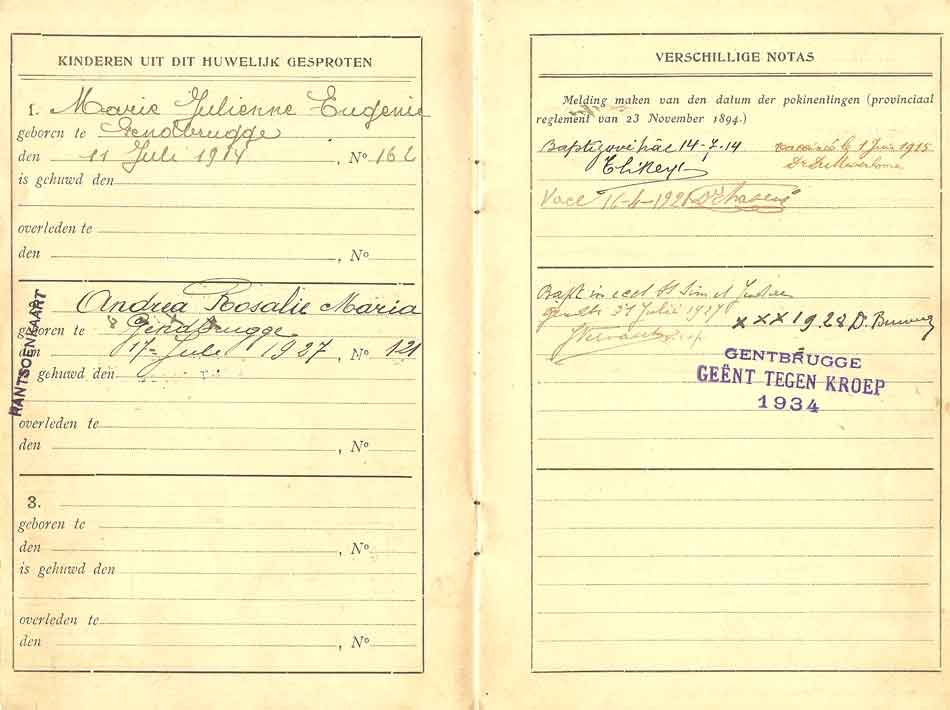 KINDEREN UIT DIT HUWELIJK GESPROTEN
1. Marie Julienne Eugenie
geboren te Gendbrugge
den 11 Juli 1914, No 162
is gehuwd den
overleden te
den , No
Andrea Rosalie Maria
geboren te Gendbrugge
den 17 Juli 1927, No 121
is gehuwd den
overleden te
den , No
RANTSOENKAART
3.
geboren te
den , No
is gehuwd den
overleden te
den , No
VERSCHILLIGE NOTAS
Melding maken van den datum der pokinentingen (provinciaal
reglement van 23 November 1894.)
14-7-14
le 1 Juin 1915
Dr
Vacc 16-4-1921 Dr
Bapt in eccl St Sim et
31 Julii 1927
x x x 1928 D.
GENTBRUGGE
GEËNT TEGEN KROEP
1934